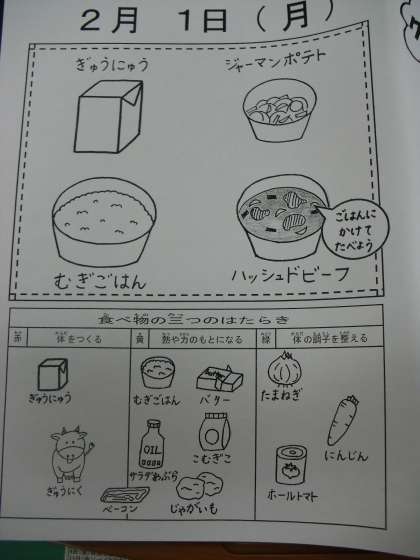 2月 1日(月)
ぎゅうにゅう
ジャーマンポテト
むぎごはん
ハッシュドビーフ
ごはんに
かけて
たべよう
食べ物の三つのはたらき
赤 体をつくる
黄 熱や力のもとになる
緑 体の調子を整える
ぎゅうにゅう
むぎごはん
バター
たまねぎ
OIL
サラダあぶら
こむぎこ
にんじん
ぎゅうにく
ベーコン
じゃがいも
ホールトマト